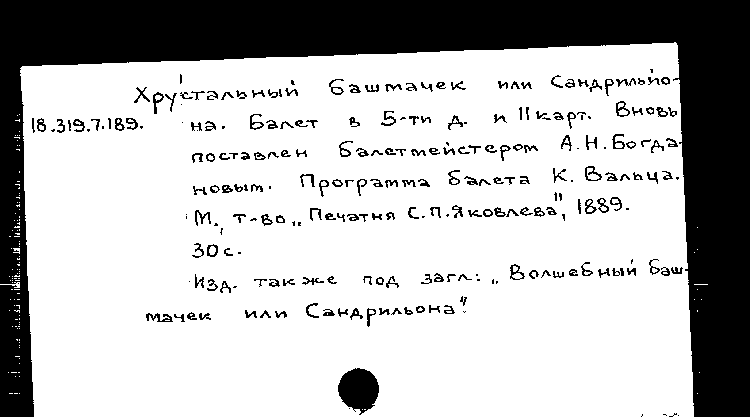 Хрустальный башмачек или Сандрильйо-
18.319.7.189. на. Балет в 5-ти д. и 11 карт. Вновь
поставлен балетмейстером А.Н.Богда-
новым. Программа балета К. Вальца.
М., т-во „Печатня С.П.Яковлева", 1889.
30 с.
Изд. также под загл.: „Волшебный баш-
мачек или Сандрильона".